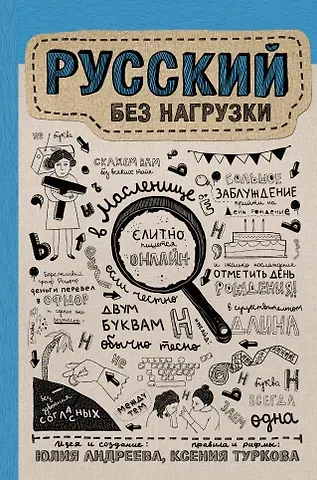 РУССКИЙ
БЕЗ НАГРУЗКИ
не буква
СКАЖЕМ ВАМ
без всяких тайн
БОЛЬШОЕ
ЗАБЛУЖДЕНИЕ
прийти на
день рождение
в масленице
СЛИТНО
пишется
ОНЛАЙН
ОТМЕТИТЬ ДЕНЬ
РОЖДЕНИЯ!
деньги перевел
в ОФШОР
если честно
ДВУМ
БУКВАМ
Н
обычно тесно
в существительном
ДЛИНА
без
СОГЛАСНЫХ
не
МЕЖДУ
ТЕМ
буква
Н
ВСЕГДА
ЗАЕМ
одна
Идея и создание:
правила и рифмы:
ЮЛИЯ АНДРЕЕВА, КСЕНИЯ ТУРКОВА